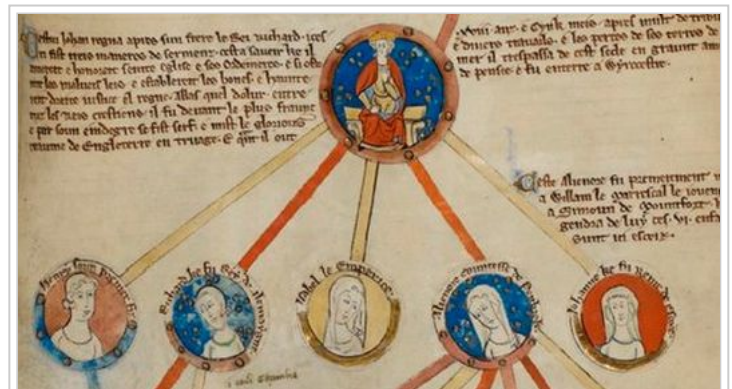 Cestui Johan regna apres sun frere le Rei Richard · ices
en fist treis maneres de serment · cesta saveir ke il
amereit e honoreit seinte eglise e ses Ordeineres · e
les malveis leis · e establereit les bones · e
dreite justice el regne · Allas quel dolur · entre
les Reis crestiens · il fu devant le plus franc
e par soun eindegre se fist serf · e mist le glorious
reaume de Engleterre en truage · E
xviii · anz · e cynk meis · apres mult de
e divers travails · e les pertes de ses terres de
mer il trespassa de cest secle en graunt
de pensee · e fu enterre a Wyrecestre ·
Ceste Alienore fu premerement
a Willam le Marescal le joven
a Simoun de Mountfort ·
gendra de luy ces · vi ·
sunt ici escriz ·
Richard ke fu Rey de
Ysabel le Emperice
Alienore countesse de
Johanne ke fu Reine de